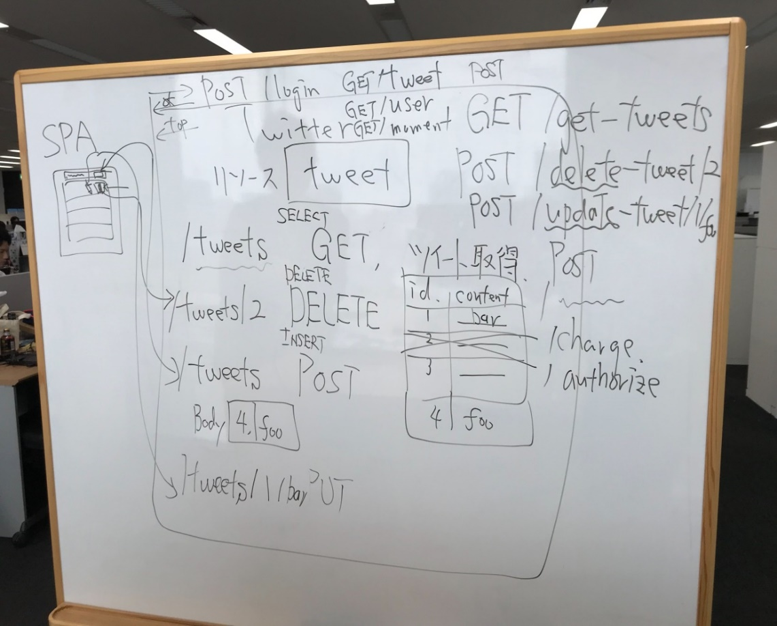 POST /login GET/tweet POST
GET/user
Twitter GET/moment
GET /get-tweets
top
SPA
リソース tweet
POST /delete-tweet/2
POST /update-tweet/1/foo
SELECT
/tweets GET,
ツイート取得
POST
DELETE
/tweets/2 DELETE
INSERT
/tweets POST
Body 4. foo
/tweets/1/bar PUT
id. content
1 bar
2
3
4 foo
/charge
/authorize